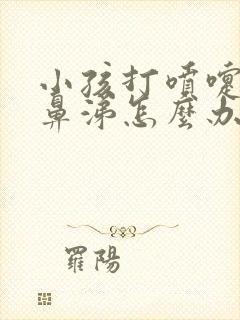 小孩打噴嚏
鼻涕怎麼办
羅陽